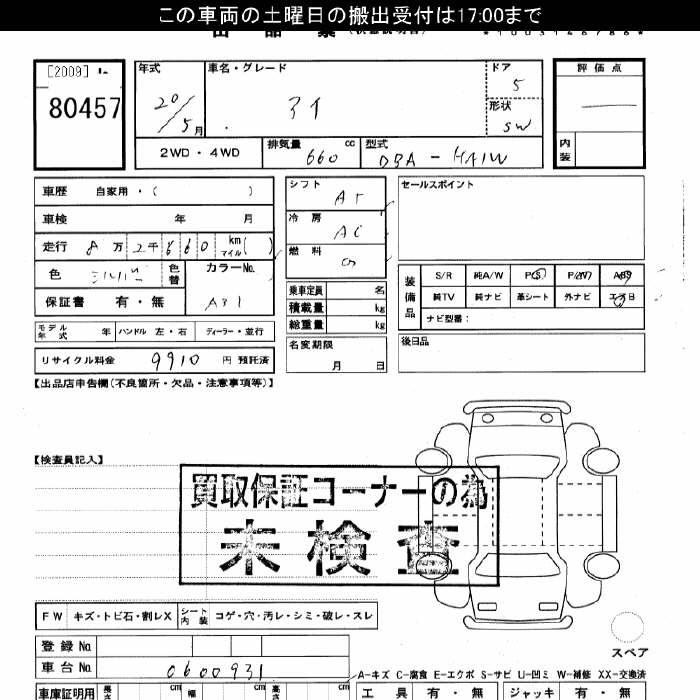 この車両の土曜日の搬出受付は17:00まで
[2009]
80457
年式
20/5月
車名・グレード
アイ
ドア
5
形状
SW
評価点
内装
2WD・4WD
排気量 660 cc
型式 DBA-HA1W
車歴 自家用・( )
車検 年 月
走行 8万2千660 km マイル( )
色 シルバー 色替
カラーNo. A31
保証書 有・無
モデル年式 年 ハンドル 左・右 ディーラー・並行
リサイクル料金 9910 円 預託済
シフト AT
冷房 AC
燃料
乗車定員 名
積載量 kg
総重量 kg
名変期限 月 日
セールスポイント
装備品
S/R 純A/W P(S) P/W ABS
純TV 純ナビ 革シート 外ナビ エアB
ナビ型番:
後日品
【出品店申告欄(不良箇所・欠品・注意事項等)】
【検査員記入】
買取保証コーナーの為
未検査
FW キズ・トビ石・割レX シート内装 コゲ・穴・汚レ・シミ・破レ・スレ
登録No.
車台No. 0600931
スペア
A-キズ C-腐食 E-エクボ S-サビ U-凹ミ W-補修 XX-交換済
車庫証明用 長さ cm 幅 cm 高さ cm
工具 有・無 ジャッキ 有・無